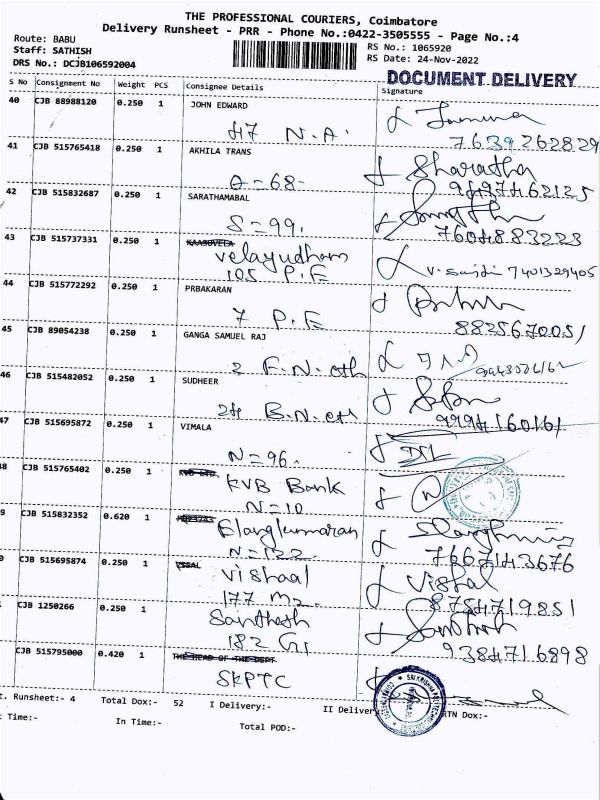 THE PROFESSIONAL COURIERS, Coimbatore
Delivery Runsheet - PRR - Phone No.:0422-3505555 - Page No.:4
Route: BABU
Staff: SATHISH
DRS No.: DCJB106592004
RS No.: 1065920
RS Date: 24-Nov-2022
DOCUMENT DELIVERY
S No Consignment No Weight PCS Consignee Details Signature
40 CJB 88988120 0.250 1 JOHN EDWARD
47 N.A.
7639262829
41 CJB 515765418 0.250 1 AKHILA TRANS
0=68- Sharatha
9497462125
42 CJB 515832687 0.250 1 SARATHAMABAL
S=99.
7604883223
43 CJB 515737331 0.250 1 KAASUVELA
Velayudham
105 P.E 7401329405
44 CJB 515772292 0.250 1 PRBAKARAN
7 P.E
8825670051
45 CJB 89054238 0.250 1 GANGA SAMUEL RAJ
2 F.N. oth
46 CJB 515482052 0.250 1 SUDHEER
24 B.N. oth
9994160161
47 CJB 515695872 0.250 1 VIMALA
N=96.
8 CJB 515765402 0.250 1 KVB LTD.
KVB Bank
N=10
9 CJB 515832352 0.620 1
Elangkumaran
N=122.
7667143676
0 CJB 515695874 0.250 1 VSSAL
Vishaal Vishal
177 M2. 8754719851
CJB 1250266 0.250 1 Santhosh Santhosh
182 G1 9384716898
CJB 515795000 0.420 1 THE HEAD OF THE DEPT
SKPTC
t. Runsheet:- 4 Total Dox:- 52 I Delivery:- II Delivery RTN Dox:-
t Time:- In Time:- Total POD:-